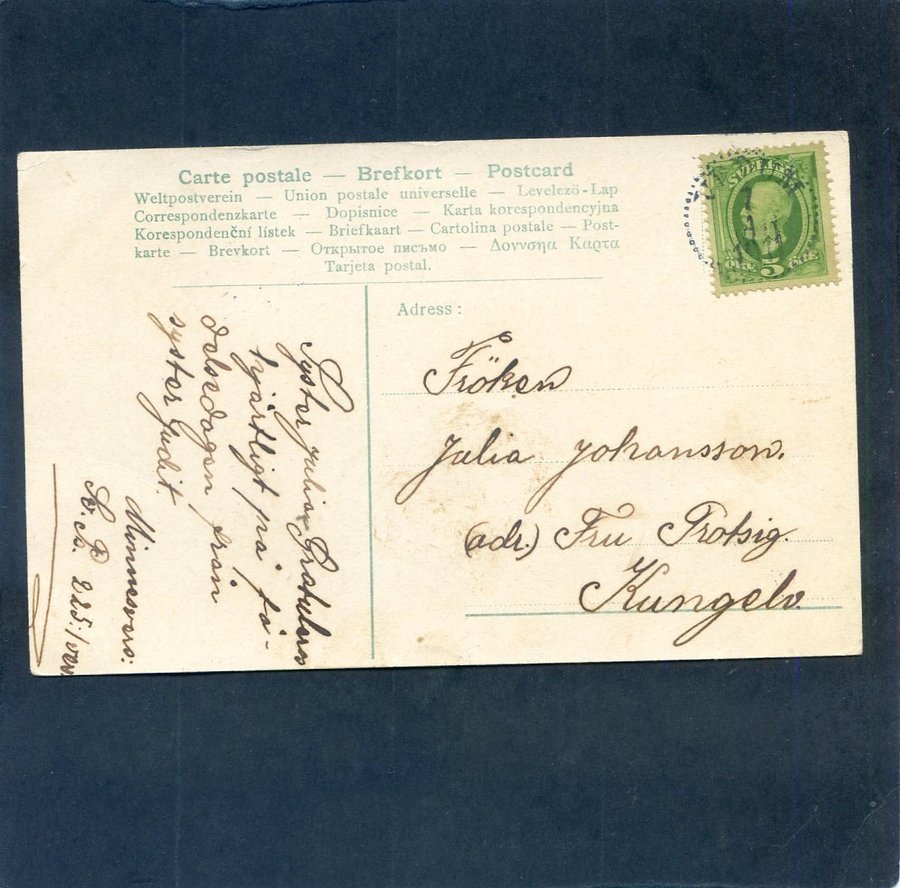 Carte postale — Brefkort — Postcard
Weltpostverein — Union postale universelle — Levelező-Lap
Correspondenzkarte — Dopisnice — Karta korespondencyjna
Korespondenční lístek — Briefkaart — Cartolina postale — Post-
karte — Brevkort — Открытое письмо — Δοννσηα Καρτα
Tarjeta postal.
SVERIGE
5
ÖRE
Adress:
Fröken
Julia Johansson.
(adr.) Fru Trotsig.
Kungelv.
Syster Julia, Gratuleras
hjärtligt på fö-
delsedagen, från
syster Judit.
Minnesvers: